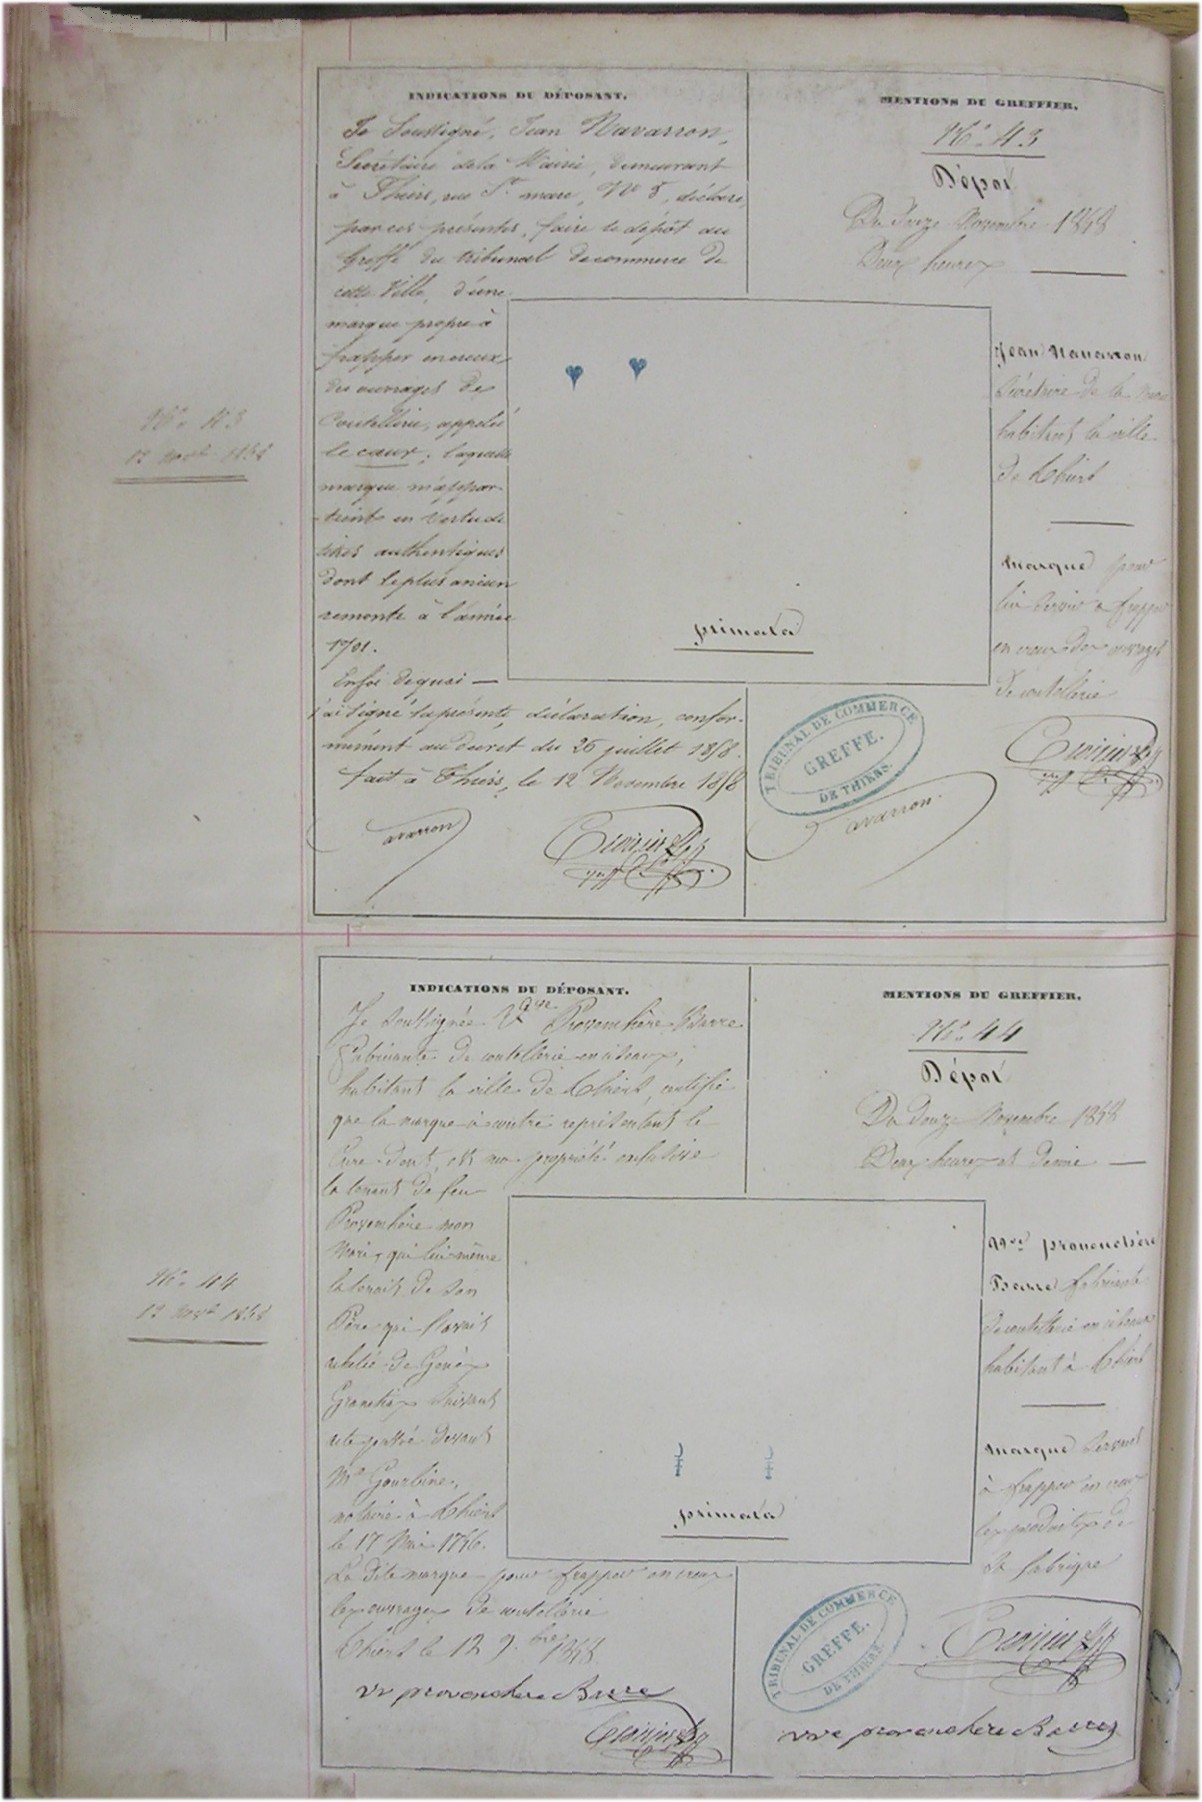 INDICATIONS DU DÉPOSANT.
Je Soussigné, Jean Navarron,
Secrétaire de la Mairie, demeurant
à Thiers, rue St. marc, No 8, déclare,
par ces présentes, faire le dépôt au
Greffe du tribunal de commerce de
cette Ville, d'une
marque propre à
frapper en creux
des ouvrages de
Coutellerie, appelée
le cœur; laquelle
marque m'appar-
-tient en vertu de
titres authentiques
dont le plus ancien
remonte à l'année
1701.
En foi de quoi —
j'ai signé la présente déclaration, confor-
mément au décret du 26 juillet 1858.
fait à Thiers, le 12 Novembre 1858
Navarron
MENTIONS DU GREFFIER.
No. 43
Dépôt
Du Douze Novembre 1858
Deux heures
Jean Navarron
Sécretaire de la
habitant la ville
de Thiers
Marque pour
lui servir a frapper
en creux des ouvrages
de coutellerie
primata
TRIBUNAL DE COMMERCE
GREFFE.
DE THIERS.
Navarron
No. 43
12 novbre 1858
INDICATIONS DU DÉPOSANT.
Je soussignée Vve Provenchère Barre
fabricante de coutellerie en ciseaux,
habitant la ville de Thiers, certifie
que la marque ci contre représentant le
Cure-dent, est ma propriété
la tenant de feu
Provenchère mon
Mari, qui lui-même
la tenait de son
Père qui l'avait
achetée de Genès
suivant
acte passé devant
Me
notaire à Thiers
le 17 Mai 1776.
La dite marque pour frapper en creux
les ouvrages de coutellerie
Thiers le 12 9.bre 1858
vve provenchere Barre
MENTIONS DU GREFFIER.
No. 44
Dépôt
Du Douze Novembre 1858
Deux heures et demie —
Vve provenchère
Barre fabricante
de coutellerie en ciseaux
habitant à Thiers
Marque servant
à frapper en creux
les produits de
sa fabrique
primata
TRIBUNAL DE COMMERCE
GREFFE.
DE THIERS.
vve provenchère Barre
No. 44
12 novbre 1858